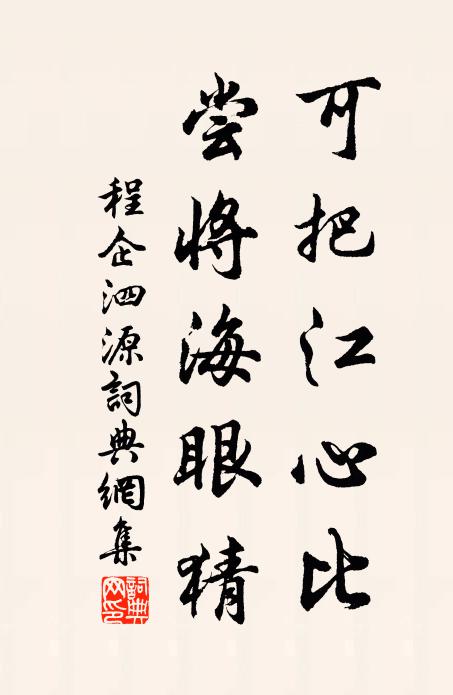 可把江心比
尝將海眼猜
程企泗源詞典網集
詞典網印